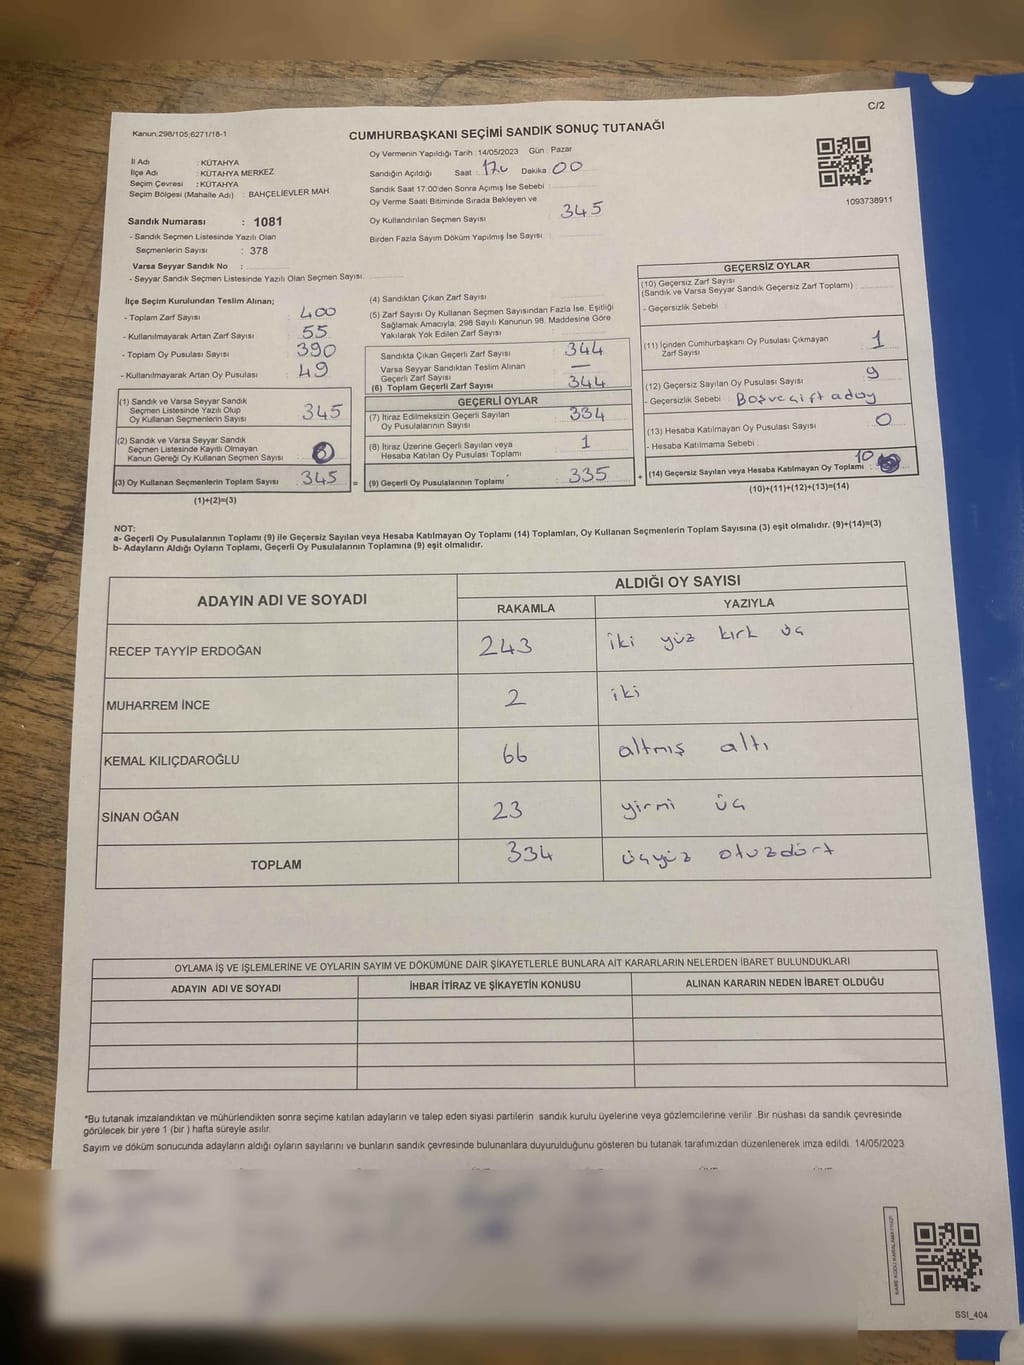 C/2
Kanun:298/105,6271/18-1
CUMHURBAŞKANI SEÇİMİ SANDIK SONUÇ TUTANAĞI
İl Adı : KÜTAHYA
İlçe Adı : KÜTAHYA MERKEZ
Seçim Çevresi : KÜTAHYA
Seçim Bölgesi (Mahalle Adı) : BAHÇELİEVLER MAH.
Sandık Numarası : 1081
- Sandık Seçmen Listesinde Yazılı Olan
Seçmenlerin Sayısı : 378
Varsa Seyyar Sandık No :
- Seyyar Sandık Seçmen Listesinde Yazılı Olan Seçmen Sayısı:
Oy Vermenin Yapıldığı Tarih :14/05/2023 Gün : Pazar
Sandığın Açıldığı Saat : Dakika : 00
Sandık Saat 17:00'den Sonra Açımış İse Sebebi :
Oy Verme Saati Bitiminde Sırada Bekleyen ve
Oy Kullandırılan Seçmen Sayısı 345
Birden Fazla Sayım Döküm Yapılmış İse Sayısı :
1093738911
İlçe Seçim Kurulundan Teslim Alınan;
- Toplam Zarf Sayısı : 400
- Kullanılmayarak Artan Zarf Sayısı : 55
- Toplam Oy Pusulası Sayısı : 390
- Kullanılmayarak Artan Oy Pusulası : 49
(1) Sandık ve Varsa Seyyar Sandık
Seçmen Listesinde Yazılı Olup
Oy Kullanan Seçmenlerin Sayısı : 345
(2) Sandık ve Varsa Seyyar Sandık
Seçmen Listesinde Kayıtlı Olmayan
Kanun Gereği Oy Kullanan Seçmen Sayısı :
(3) Oy Kullanan Seçmenlerin Toplam Sayısı : 345 =
(1)+(2)=(3)
(4) Sandıktan Çıkan Zarf Sayısı :
(5) Zarf Sayısı Oy Kullanan Seçmen Sayısından Fazla İse, Eşitliği
Sağlamak Amacıyla; 298 Sayılı Kanunun 98. Maddesine Göre
Yakılarak Yok Edilen Zarf Sayısı :
Sandıkta Çıkan Geçerli Zarf Sayısı : 344
Varsa Seyyar Sandıktan Teslim Alınan
Geçerli Zarf Sayısı : —
(6) Toplam Geçerli Zarf Sayısı : 344
GEÇERLİ OYLAR
(7) İtiraz Edilmeksizin Geçerli Sayılan
Oy Pusulalarının Sayısı : 334
(8) İtiraz Üzerine Geçerli Sayılan veya
Hesaba Katılan Oy Pusulası Toplamı : 1
(9) Geçerli Oy Pusulalarının Toplamı : 335 +
GEÇERSİZ OYLAR
(10) Geçersiz Zarf Sayısı
(Sandık ve Varsa Seyyar Sandık Geçersiz Zarf Toplamı) :
- Geçersizlik Sebebi :
(11) İçinden Cumhurbaşkanı Oy Pusulası Çıkmayan
Zarf Sayısı : 1
(12) Geçersiz Sayılan Oy Pusulası Sayısı : 9
- Geçersizlik Sebebi : Boş ve çift aday
(13) Hesaba Katılmayan Oy Pusulası Sayısı : 0
- Hesaba Katılmama Sebebi :
(14) Geçersiz Sayılan veya Hesaba Katılmayan Oy Toplamı : 10
(10)+(11)+(12)+(13)=(14)
NOT:
a- Geçerli Oy Pusulalarının Toplamı (9) ile Geçersiz Sayılan veya Hesaba Katılmayan Oy Toplamı (14) Toplamları, Oy Kullanan Seçmenlerin Toplam Sayısına (3) eşit olmalıdır. (9)+(14)=(3)
b- Adayların Aldığı Oyların Toplamı, Geçerli Oy Pusulalarının Toplamına (9) eşit olmalıdır.
ADAYIN ADI VE SOYADI ALDIĞI OY SAYISI
RAKAMLA YAZIYLA
RECEP TAYYİP ERDOĞAN 243 iki yüz kırk üç
MUHARREM İNCE 2 iki
KEMAL KILIÇDAROĞLU 66 altmış altı
SİNAN OĞAN 23 yirmi üç
TOPLAM 334 üçyüz otuzdört
OYLAMA İŞ VE İŞLEMLERİNE VE OYLARIN SAYIM VE DÖKÜMÜNE DAİR ŞİKAYETLERLE BUNLARA AİT KARARLARIN NELERDEN İBARET BULUNDUKLARI
ADAYIN ADI VE SOYADI İHBAR İTİRAZ VE ŞİKAYETİN KONUSU ALINAN KARARIN NEDEN İBARET OLDUĞU
*Bu tutanak imzalandıktan ve mühürlendikten sonra seçime katılan adayların ve talep eden siyasi partilerin sandık kurulu üyelerine veya gözlemcilerine verilir .Bir nüshası da sandık çevresinde
görülecek bir yere 1 (bir ) hafta süreyle asılır.
Sayım ve döküm sonucunda adayların aldığı oyların sayılarını ve bunların sandık çevresinde bulunanlara duyurulduğunu gösteren bu tutanak tarafımızdan düzenlenerek imza edildi. 14/05/2023
KARE KODU KARALAMAYINIZ!
SSI_404